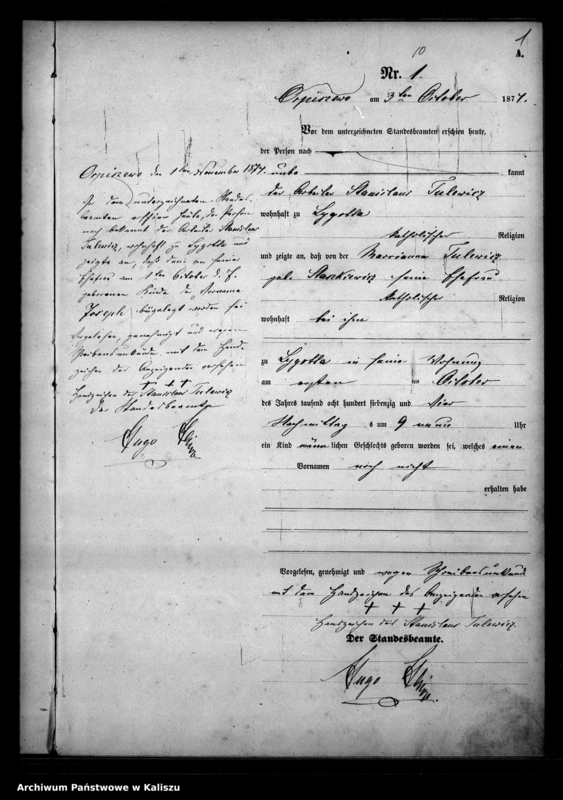 1
A.
10
Nr. 1.
Orpiszewo am 3ten October 1874.
Vor dem unterzeichneten Standesbeamten erschien heute,
der Person nach
unbekannt
der Arbeiter Stanislaus Tulewicz
wohnhaft zu Lygotta
katholischer Religion
und zeigte an, daß von der Marianna Tulewicz
geb. Stankiewicz seine Ehefrau
katholischer Religion
wohnhaft bei ihm
zu Lygotta in seine Wohnung
am ersten ten October
des Jahres tausend acht hundert siebenzig und vier
Nachmittag s um 9 neun Uhr
ein Kind männlichen Geschlechts geboren worden sei, welches einen
Vornamen noch nicht
erhalten habe
Vorgelesen, genehmigt und wegen Schreibensunkunde
mit dem Handzeichen des Anzeigenden versehen
+ + +
Handzeichen des Stanislaus Tulewicz.
Der Standesbeamte.
Hugo
Orpiszewo den 1ten November 1874.
Vor dem unterzeichneten Standes-
beamten erschien heute, der Person
nach bekannt der Arbeiter Stanislaus
Tulewicz, wohnhaft zu Lygotta und
zeigte an, daß dem von seine
Ehefrau am 1ten October d. J.
geborenen Kinde der Vorname
Joseph beigelegt worden sei
Vorgelesen, genehmigt und wegen
Schreibensunkunde mit dem Hand-
zeichen des Anzeigenden versehen
+ + +
Handzeichen des Stanislaus Tulewicz
Der Standesbeamte
Hugo
Archiwum Państwowe w Kaliszu